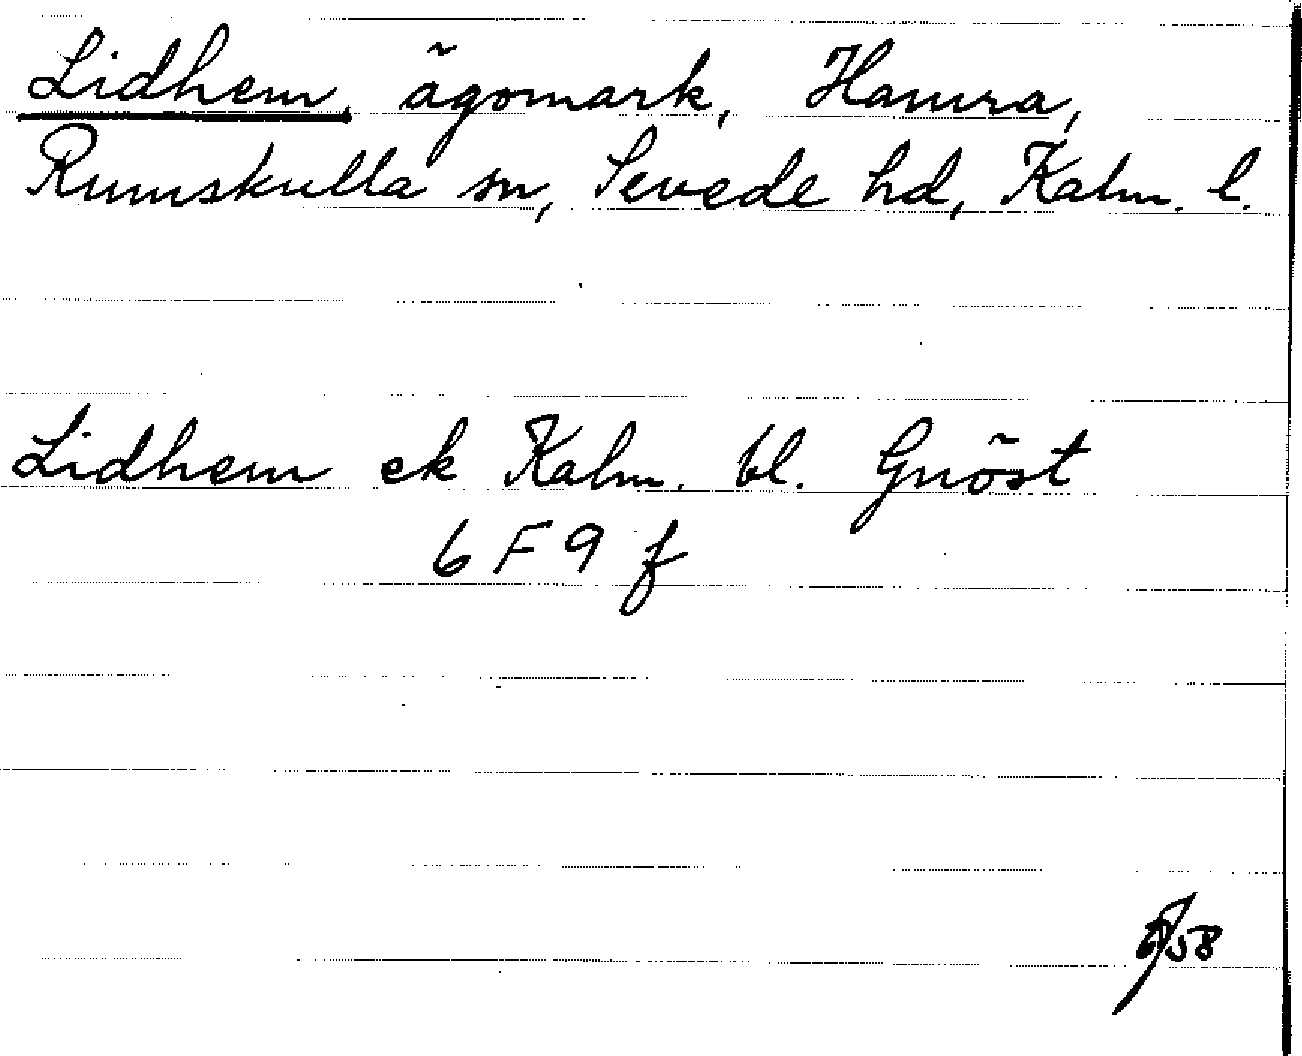 Lidhem, ägomark, Hamra,
Rumskulla sn, Sevede hd, Kalm. l.
Lidhem ek Kalm. bl. Gnöst
6 F 9 f